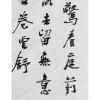 驚看庭前
去留無意
卷雲舒